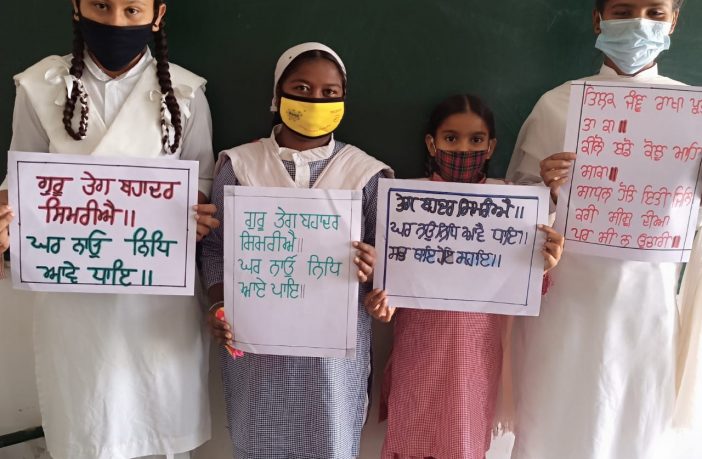 ਗੁਰੂ ਤੇਗ ਬਹਾਦਰ
ਸਿਮਰੀਐ॥
ਘਰ ਨਾਉ ਨਿਧਿ
ਆਵੇ ਧਾਇ॥
ਗੁਰੂ ਤੇਗ ਬਹਾਦਰ
ਸਿਮਰੀਐ॥
ਘਰ ਨਾਉ ਨਿਧਿ
ਆਏ ਧਾਇ॥
ਤੇਗ ਬਹਾਦਰ ਸਿਮਰੀਐ॥
ਘਰ ਨਉ ਨਿਧਿ ਆਵੈ ਧਾਇ॥
ਸਭ ਥਾਈ ਹੋਇ ਸਹਾਇ॥
ਤਿਲਕ ਜੰਞੂ ਰਾਖਾ
ਤਾ ਕਾ॥
ਕੀਨੋ ਬਡੋ ਕਲੂ ਮਹਿ
ਸਾਕਾ॥
ਸਾਧਨ ਹੇਤਿ ਇਤੀ ਜਿਨਿ
ਕਰੀ ਸੀਸੁ ਦੀਆ
ਪਰ ਸੀ ਨ ਉਚਰੀ॥